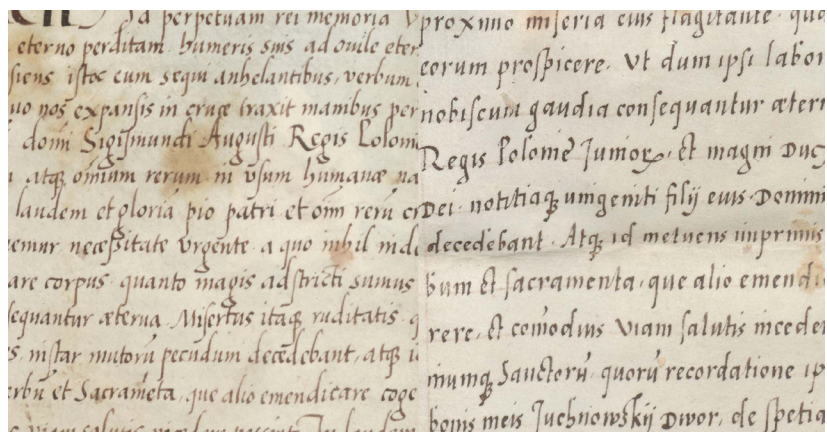 Ad perpetuam rei memoria
eterno perditam humeris suis ad ouile eter
siens istoc eum sequi anhelantibus, verbum
uo nos expansis in cruce traxit manibus per
domi Sigismundi Augusti Regis Poloni
atq omium rerum in vsum humanæ na
laudem et gloriā pio patri et oīm rerū cr
emur necessitate vrgente a quo nihil inde
are corpus quanto magis adstricti sumus
sequantur æterna. Misertus itaq ruditatis q
s, instar mutorū pecudum decedebant, atq i
erbū et Sacramēta, que alio emendicare coge
viam salutis
proximo miseria eius flagitante quo
eorum prospicere. Vt dum ipsi labor
nobiscum gaudia consequantur ætern
Regis Polonie Junior, et magni Duc
Dei notitiaq unigeniti filij euis Domini
decedebant. Atq id metuens imprimis
bum et sacramenta, que alio emendi
rere, et comodius viam salutis incede
niumq Sanctorū quorū recordatione ip
bonis meis Juchnowskij Dwor, de spetia